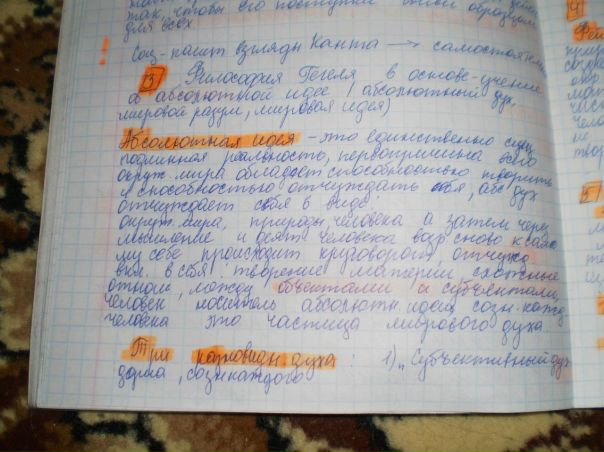 так, чтобы его поступки были образцом
для всех
Соц-полит взгляды Канта → самостоятельно
! 3) Философия Гегеля в основе - учение
об абсолютной идее (абсолютный дух,
мировой разум, мировая идея)
Абсолютная идея - это единственно сущ.
подлинная реальность, первопричина всего
окруж. мира обладает способностью творить
и способностью отчуждать себя, абс дух
отчуждает себя в виде:
окруж. мира, природы человека а затем через
мышление и деят человека возвр снова к само
му себе происходит круговорот, отчужд
вкл. в себя: творение материи, сложные
отнош, между объектами и субъектами,
человек носитель абсолютн. идеи созн. кажд
человека это частица мирового духа
Три разновидн духа: 1) „Субъективный дух
душа, созн каждого